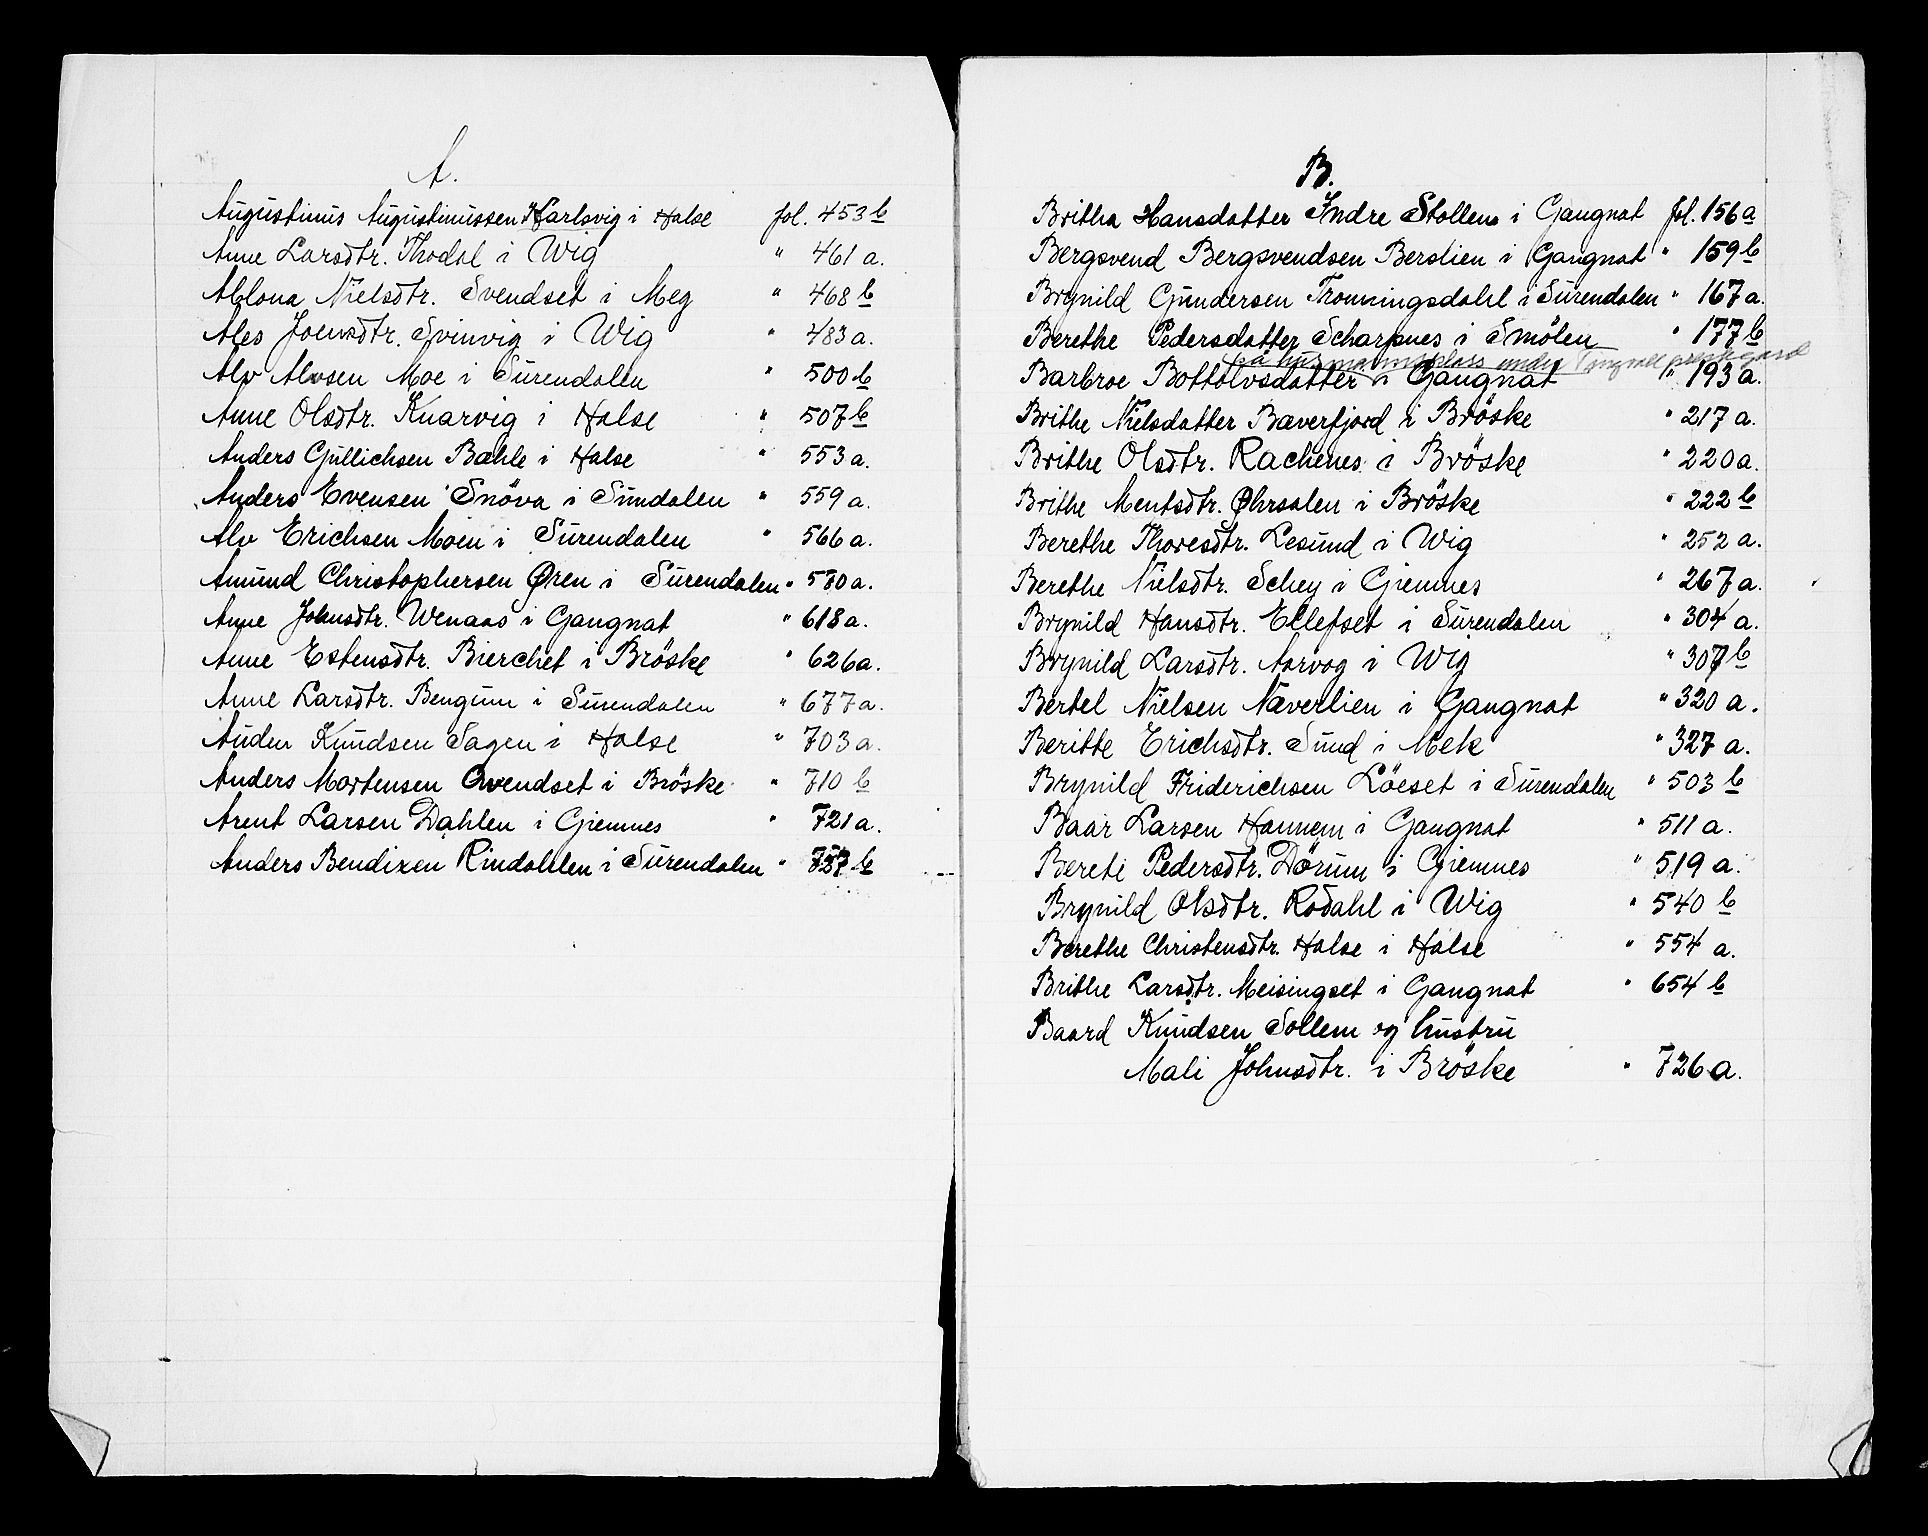 A.
Augustinus Augustinussen Harlsvig i Halse fol. 453 b
Anne Larsdtr. Thodal i Wig " 461 a.
Ablona Nielsdtr. Svendset i Meg " 468 b
Ales Joensdtr. Svinvig i Wig " 483 a.
Alv Alvsen Moe i Surendalen " 500 b
Anne Olsdtr. Knarvig i Halse " 507 b
Anders Gullichsen Bæhle i Halse " 553 a.
Anders Evensen Snöva i Sundalen " 559 a.
Alv Erichsen Moen i Surendalen " 566 a.
Amund Christophersen Øren i Surendalen " 580 a.
Anne Johnsdtr. Wenaas i Gangnat " 618 a.
Anne Estensdtr. Bierchet i Bröske " 626 a.
Anne Larsdtr. Bengum i Surendalen " 677 a.
Auden Knudsen Sagen i Halse " 703 a.
Anders Mortensen Qvendset i Bröske " 710 b
Arent Larsen Dahlen i Giemnes " 721 a.
Anders Bendixen Rindahlen i Surendalen " b
B.
Britha Hansdatter Indre Stollens i Gangnat fol. 156 a
Bergsvend Bergsvendsen Berslien i Gangnat " 159 b
Brynild Gundersen Tronningsdahl i Surendalen " 167 a.
Berethe Pedersdatter Scharpnes i Smölen " 177 b
på husmannsplass under Tingvoll prestegard
Barbroe Bottolvsdatter i Gangnat " 193 a.
Brithe Nielsdatter Bæverfjord i Bröske " 217 a.
Brithe Olsdtr. Rachenes i Bröske " 220 a.
Brithe Mentsdtr. Øhrsalen i Bröske " 222 b
Berethe Thoresdtr. Lesund i Wig " 252 a.
Berethe Nielsdtr. Schey i Giemnes " 267 a.
Brynild Hansdtr. Ellefset i Surendalen " 304 a.
Brynild Larsdtr. Aarvog i Wig " 307 b
Bertel Nielsen Næverlien i Gangnat " 320 a.
Beritte Erichsdtr. Sund i Mek " 327 a.
Brynild Friderichsen Löeset i Surendalen " 503 b
Baar Larsen Hannem i Gangnat " 511 a.
Berete Pedersdtr. Dörum i Giemnes " 519 a.
Brynild Olsdtr. Rodahl i Wig " 540 b
Berethe Christensdtr. Halse i Halse " 554 a.
Brithe Larsdtr. Meisingset i Gangnat " 654 b
Baard Knudsen Sollem og hustru
Mali Johnsdtr. i Bröske " 726 a.